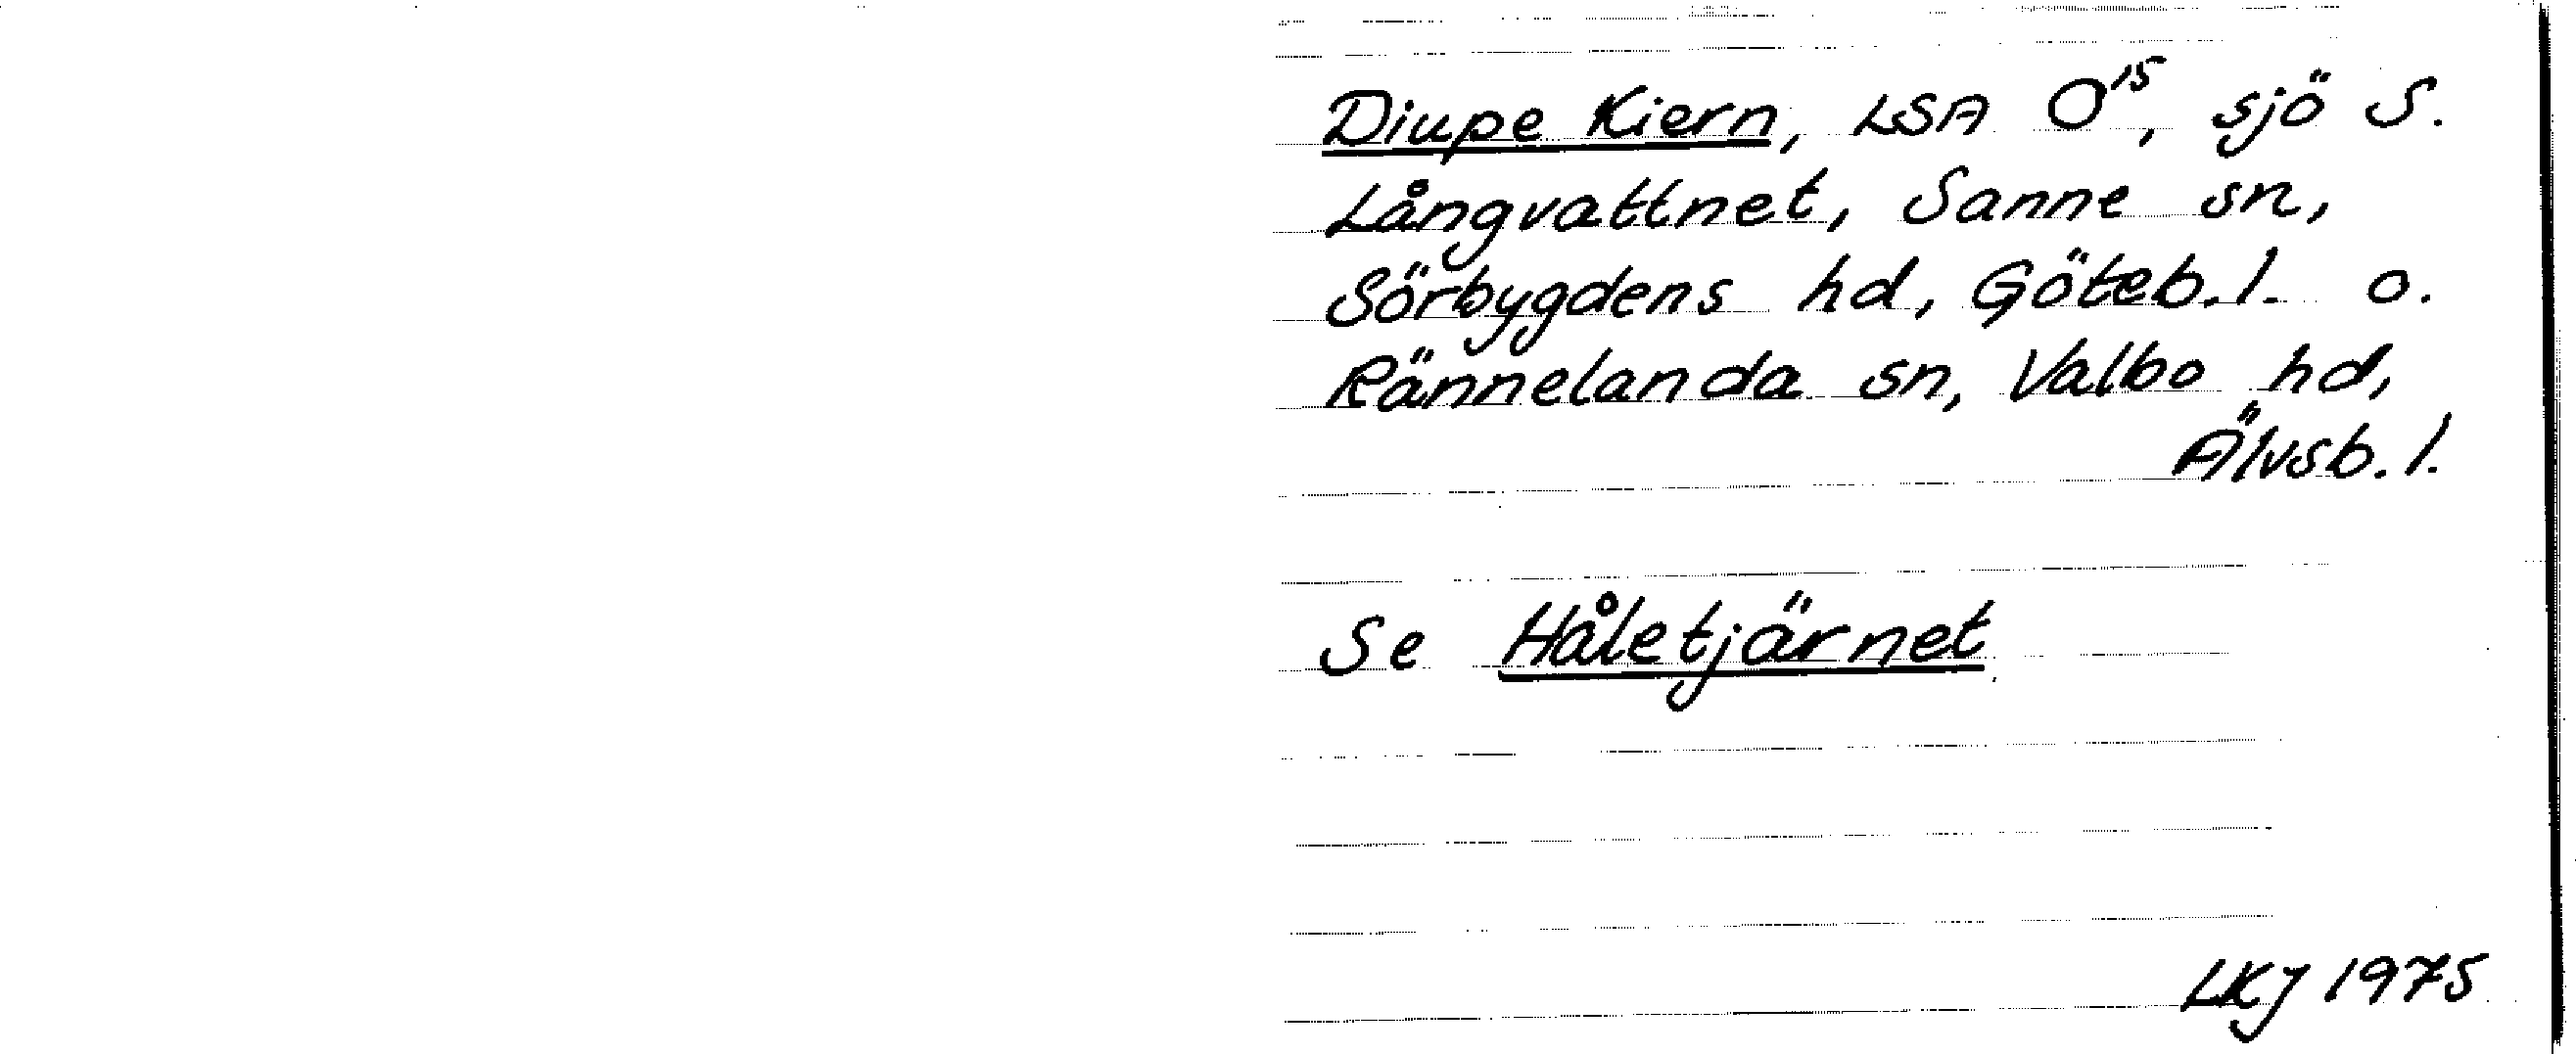 Diupe Kiern, LSA O¹⁵, sjö S.
Långvattnet, Sanne sn,
Sörbygdens hd, Göteb. l. o.
Rännelanda sn, Valbo hd,
Älvsb. l.
Se Håletjärnet
LKJ 1975